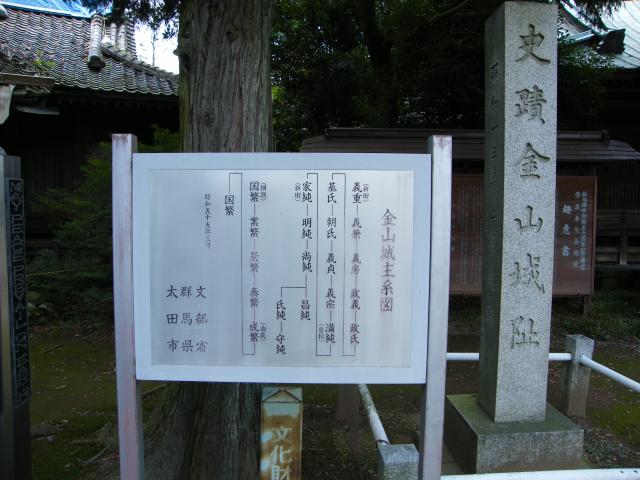 史蹟金山城阯
金山城主系図
(新田)
義重―義兼―義房―政義―政氏
基氏―朝氏―義貞―義宗―満純
(岩松)
家純―明純―尚純―昌純
(新田)
氏純―守純
国繁―業繁―景繁―泰繁―成繁
(横瀬)
(由良)
国繁
昭和五十五年三月
文部省
群馬県
太田市
趣意書
文化財
MAY PEACE PREVAIL